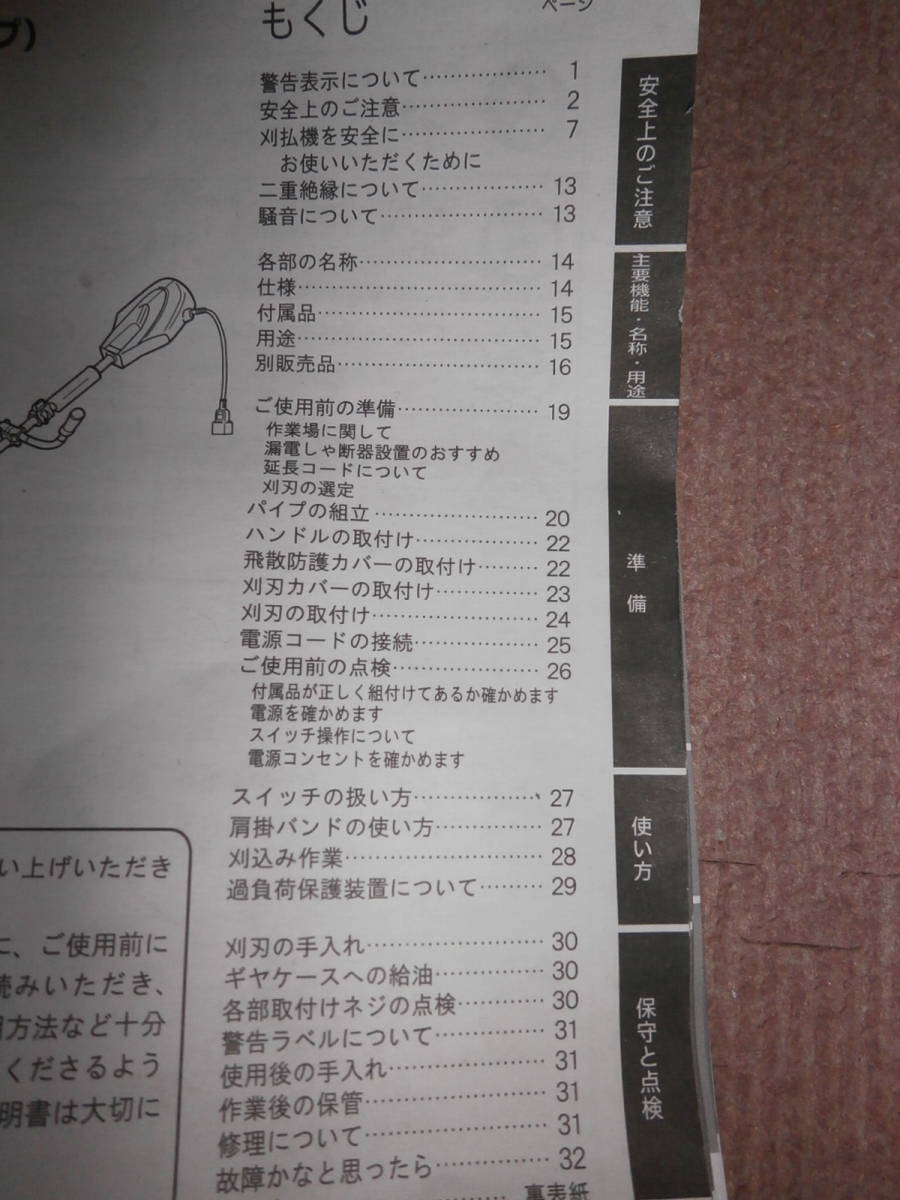 プ)
もくじ
ページ
警告表示について…………………1
安全上のご注意…………………2
刈払機を安全に…………………7
お使いいただくために
二重絶縁について…………………13
騒音について…………………13
各部の名称…………………14
仕様…………………14
付属品…………………15
用途…………………15
別販売品…………………16
ご使用前の準備…………………19
作業場に関して
漏電しゃ断器設置のおすすめ
延長コードについて
刈刃の選定
パイプの組立…………………20
ハンドルの取付け…………………22
飛散防護カバーの取付け………22
刈刃カバーの取付け……………23
刈刃の取付け…………………24
電源コードの接続………………25
ご使用前の点検…………………26
付属品が正しく組付けてあるか確かめます
電源を確かめます
スイッチ操作について
電源コンセントを確かめます
スイッチの扱い方………………27
肩掛バンドの使い方……………27
刈込み作業…………………28
過負荷保護装置について………29
刈刃の手入れ…………………30
ギヤケースへの給油……………30
各部取付けネジの点検…………30
警告ラベルについて……………31
使用後の手入れ…………………31
作業後の保管…………………31
修理について…………………31
故障かなと思ったら……………32
裏表紙
安全上のご注意
主要機能・名称・用途
準備
使い方
保守と点検
い上げいただき
に、ご使用前に
読みいただき、
用方法など十分
くださるよう
明書は大切に